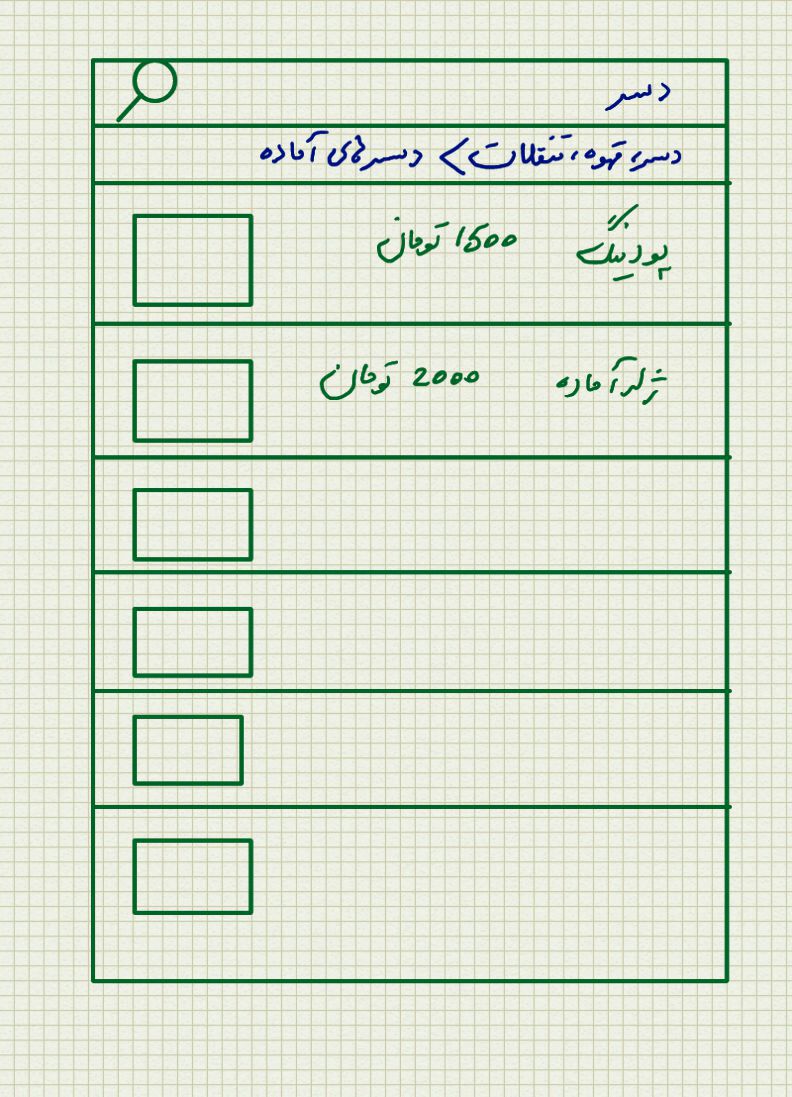 دسر
دسر، قهوه، تنقلات > دسرهای آماده
پودینگ 1500 تومان
ژله آماده 2000 تومان